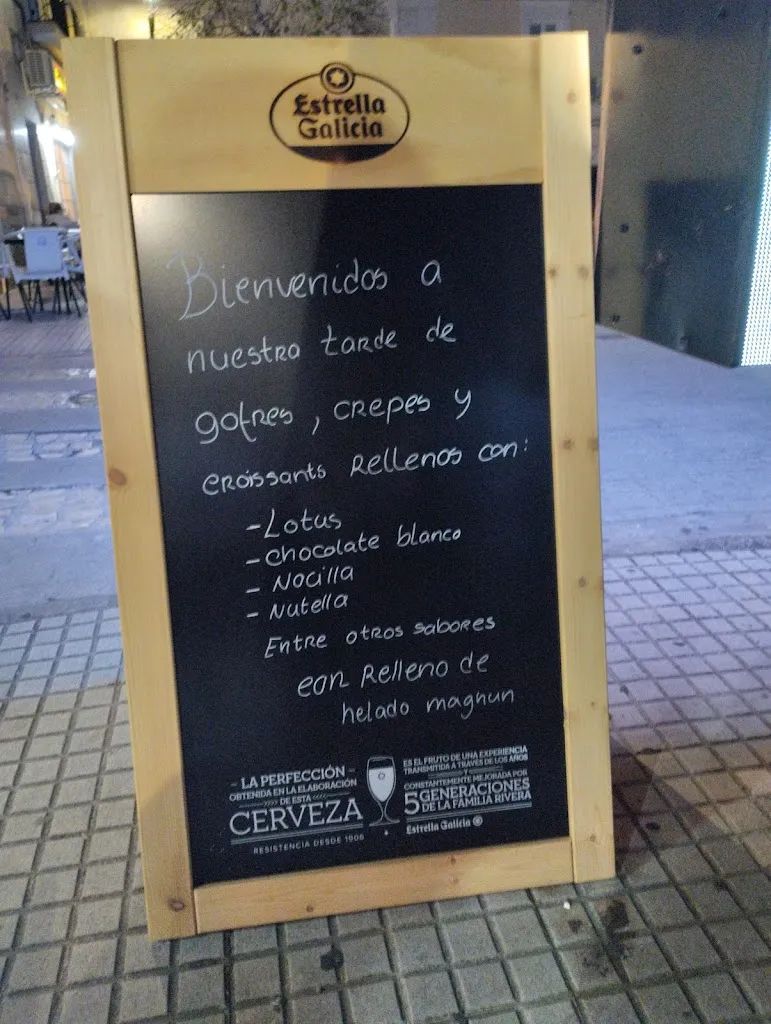 Estrella
Galicia
Bienvenidos a
nuestra tarde de
gofres, crepes y
croissants rellenos con:
- Lotus
- chocolate blanco
- Nocilla
- Nutella
Entre otros sabores
con relleno de
helado magnun
LA PERFECCIÓN
OBTENIDA EN LA ELABORACIÓN
DE ESTA
CERVEZA
RESISTENCIA DESDE 1906
ES EL FRUTO DE UNA EXPERIENCIA
TRANSMITIDA A TRAVÉS DE LOS AÑOS
Y
CONSTANTEMENTE MEJORADA POR
5 GENERACIONES
DE LA FAMILIA RIVERA
Estrella Galicia